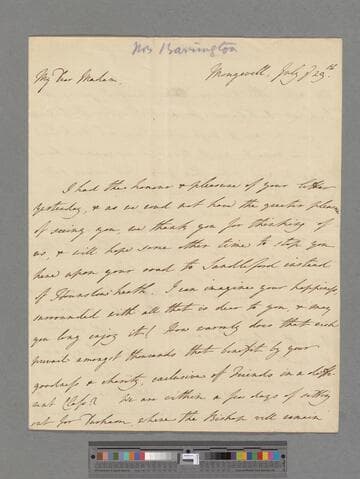 Mrs Barrington
My Dear Madam.
Mungewell, July ye 29th
I had the honour & pleasure of your letter
yesterday, & as we coud not have the greater pleasure
of seeing you, we thank you for thinking of
us, & will hope some other time to stop you
here upon your road to Sandleford instead
of Hounslow heath. I can imagine your happiness
surrounded with all that is dear to you, & may
you long enjoy it! How warmly does that wish
prevail amongst thousands that benefit by your
goodness & charity, exclusive of Friends in a diffe-
rent Class. We are within a few days of setting
out for Durham where the Bishop will remain